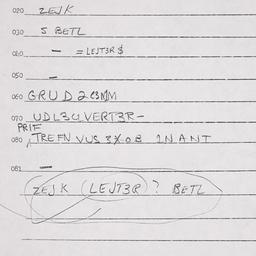 020 ZEJK
030 5 BETL
040 — = LEJT3R $
050 —
060 GRUD2
070 UDL34VERT3R-
PRIF
080 TREFN VUS 3%0B 1NANT
081 —
ZEJK (LEJT3R)? BETL